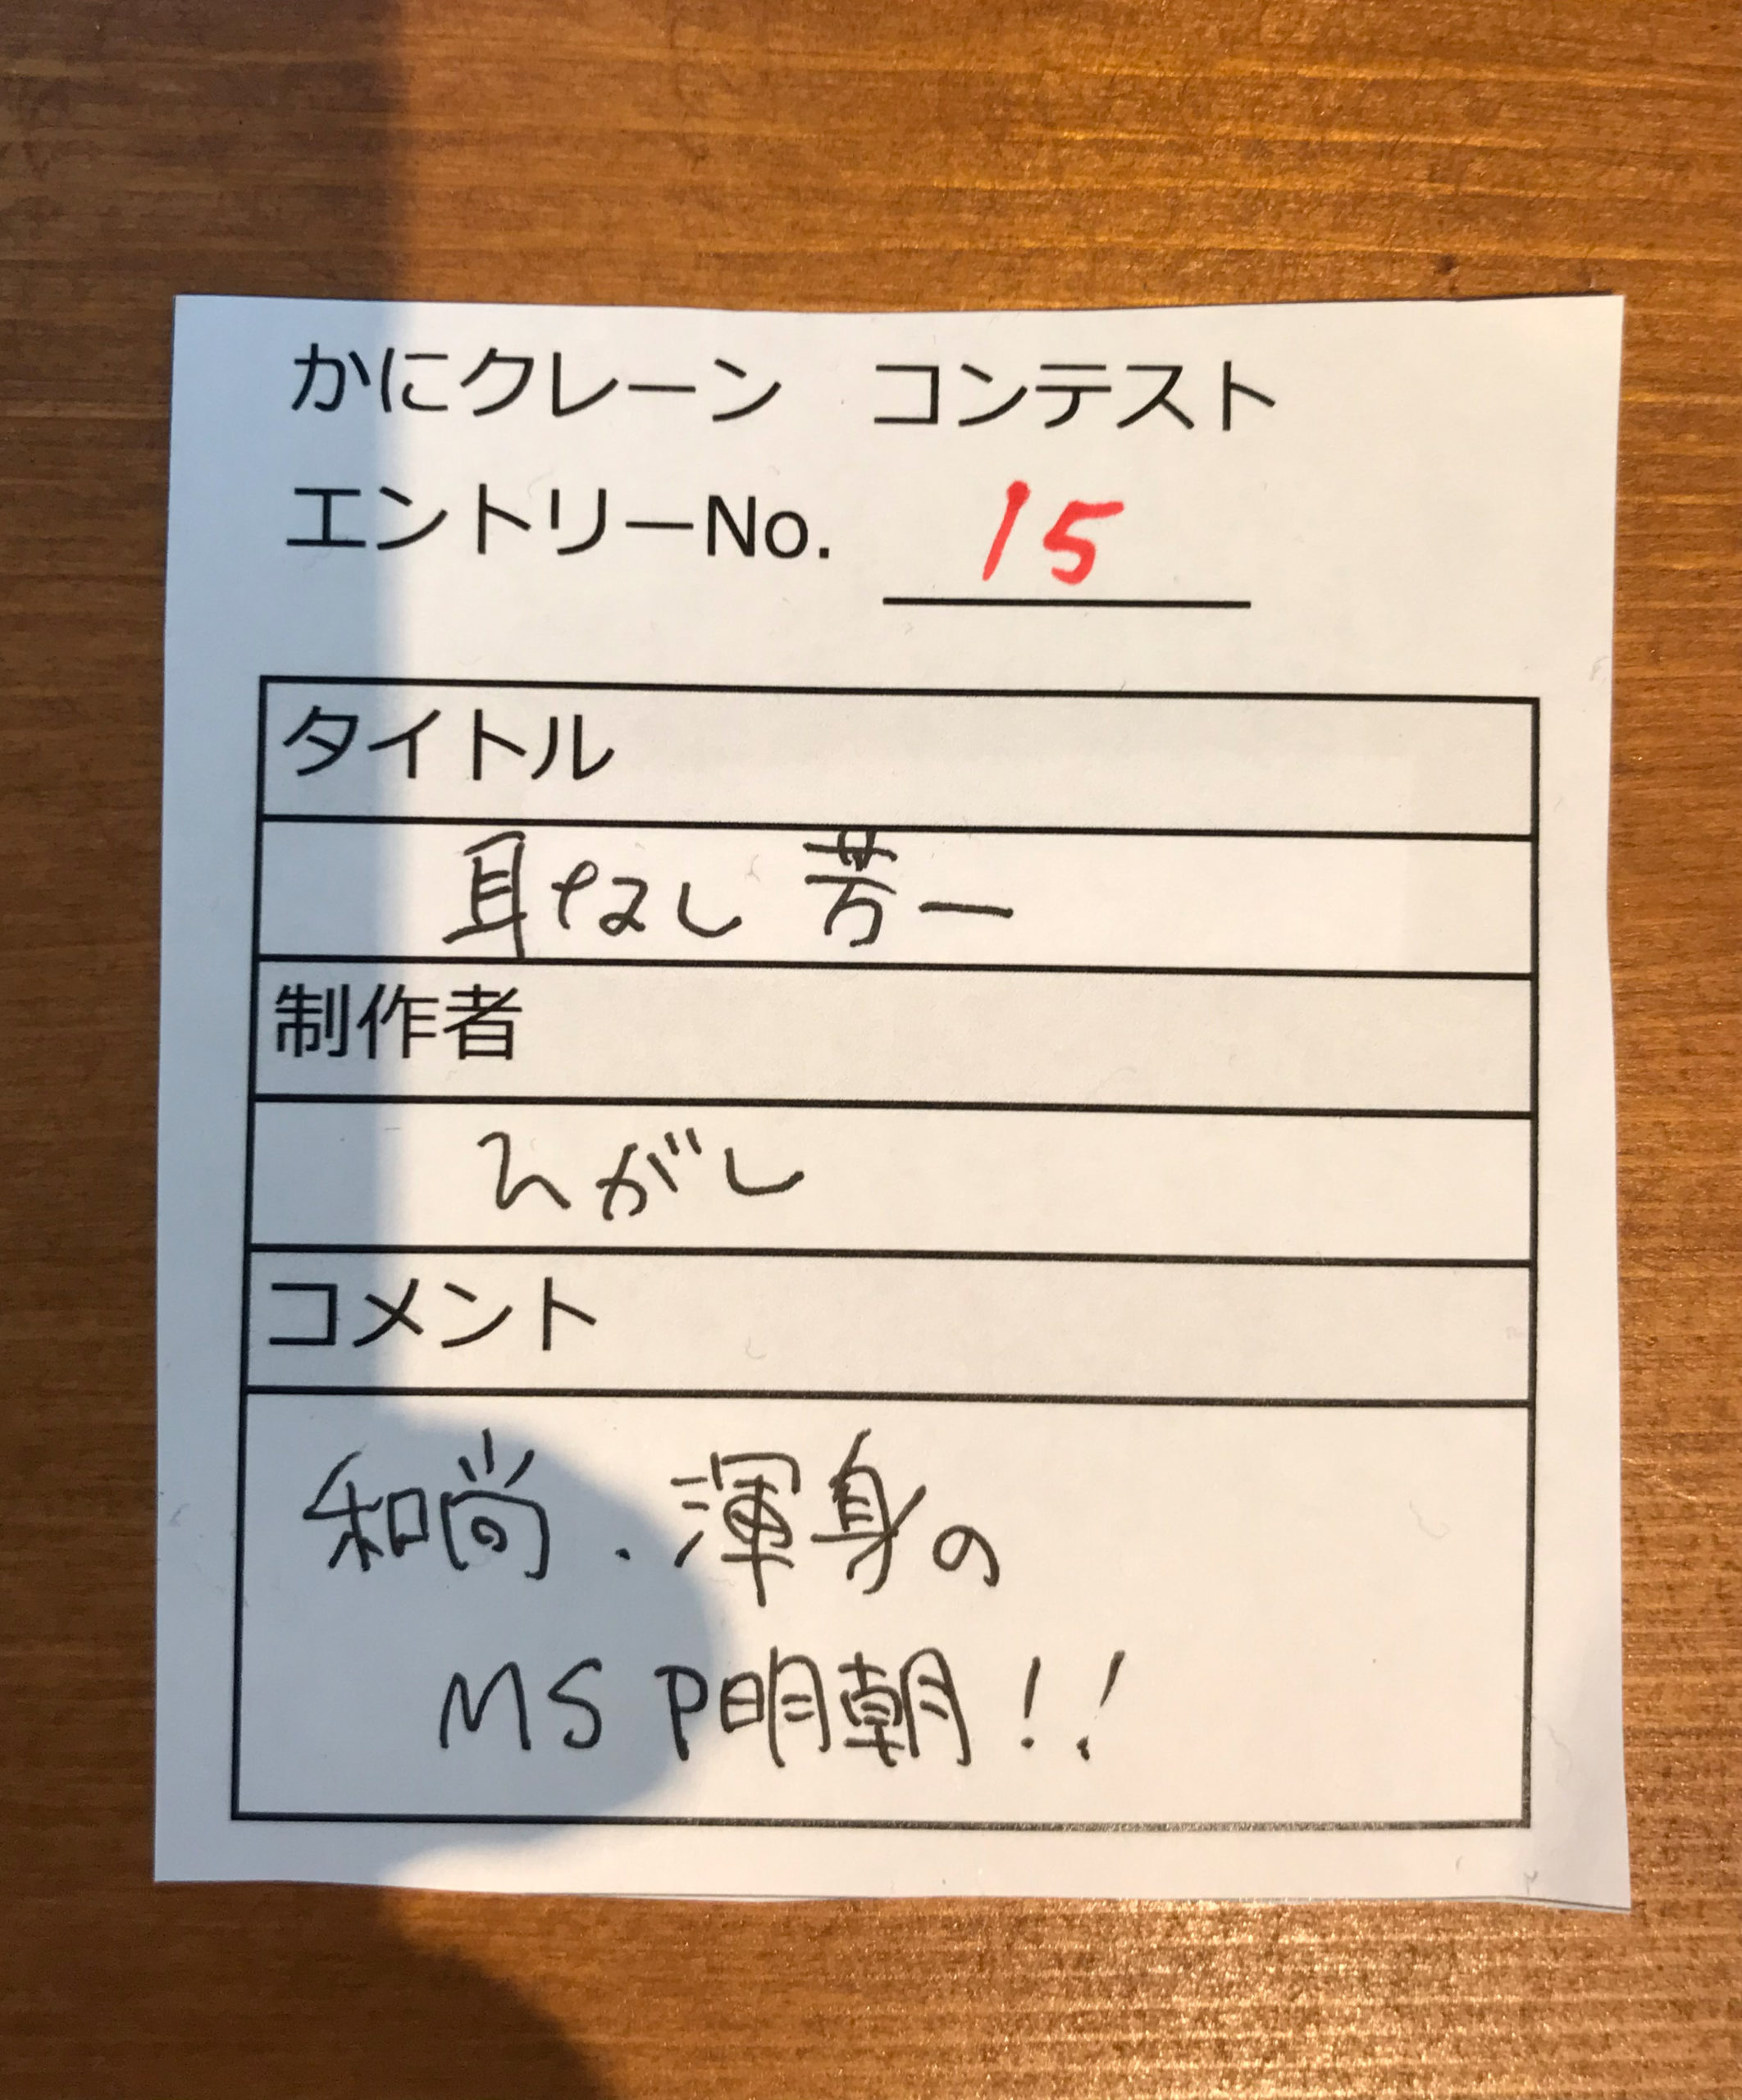 かにクレーン　コンテスト
エントリーNo. 15
タイトル
耳なし芳一
制作者
ひがし
コメント
和尚、渾身の
MS P明朝!!